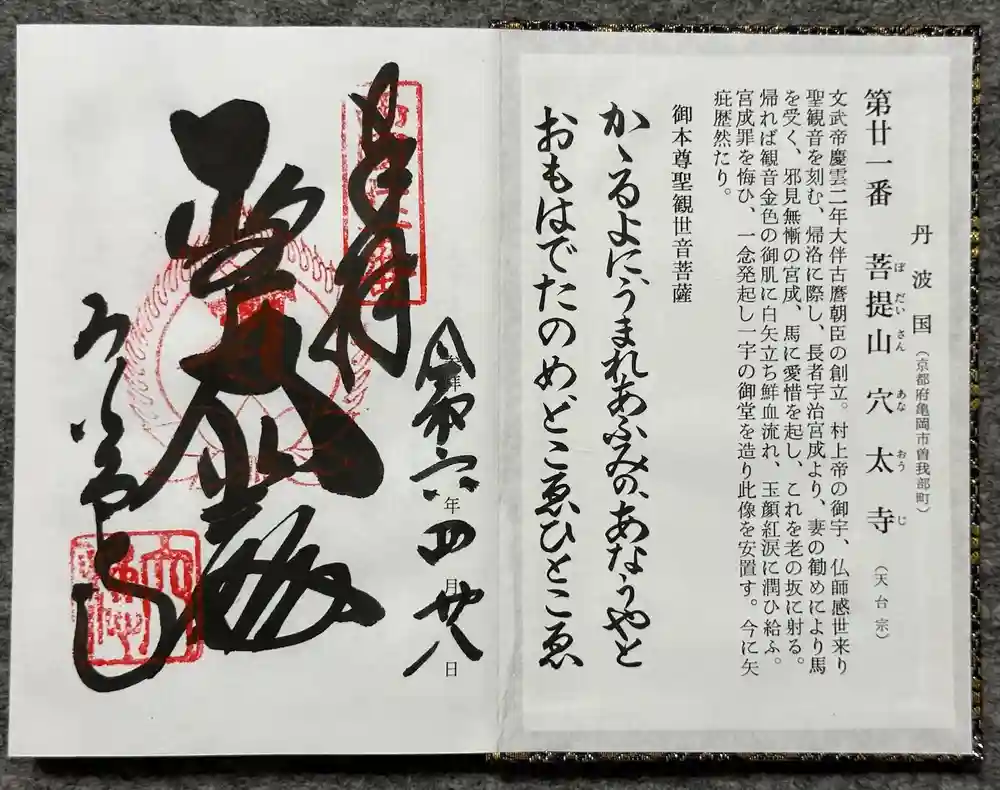 丹波国（京都府亀岡市曽我部町）
第廿一番 菩提山 穴太寺（天台宗）
ぼ だい さん あな おう じ
文武帝慶雲二年大伴古麿朝臣の創立。村上帝の御宇、仏師感世来り
聖観音を刻む、帰洛に際し、長者宇治宮成より、妻の勧めにより馬
を受く、邪見無慚の宮成、馬に愛惜を起し、これを老の坂に射る。
帰れば観音金色の御肌に白矢立ち鮮血流れ、玉顔紅涙に潤ひ給ふ。
宮成罪を悔ひ、一念発起し一宇の御堂を造り此像を安置す。今に矢
疵歴然たり。
御本尊聖観世音菩薩
かゝるよに、うまれあふみの、あなうやと
おもはでたのめ、どこゑひとこゑ
奉拝
令和六年四月廿八日